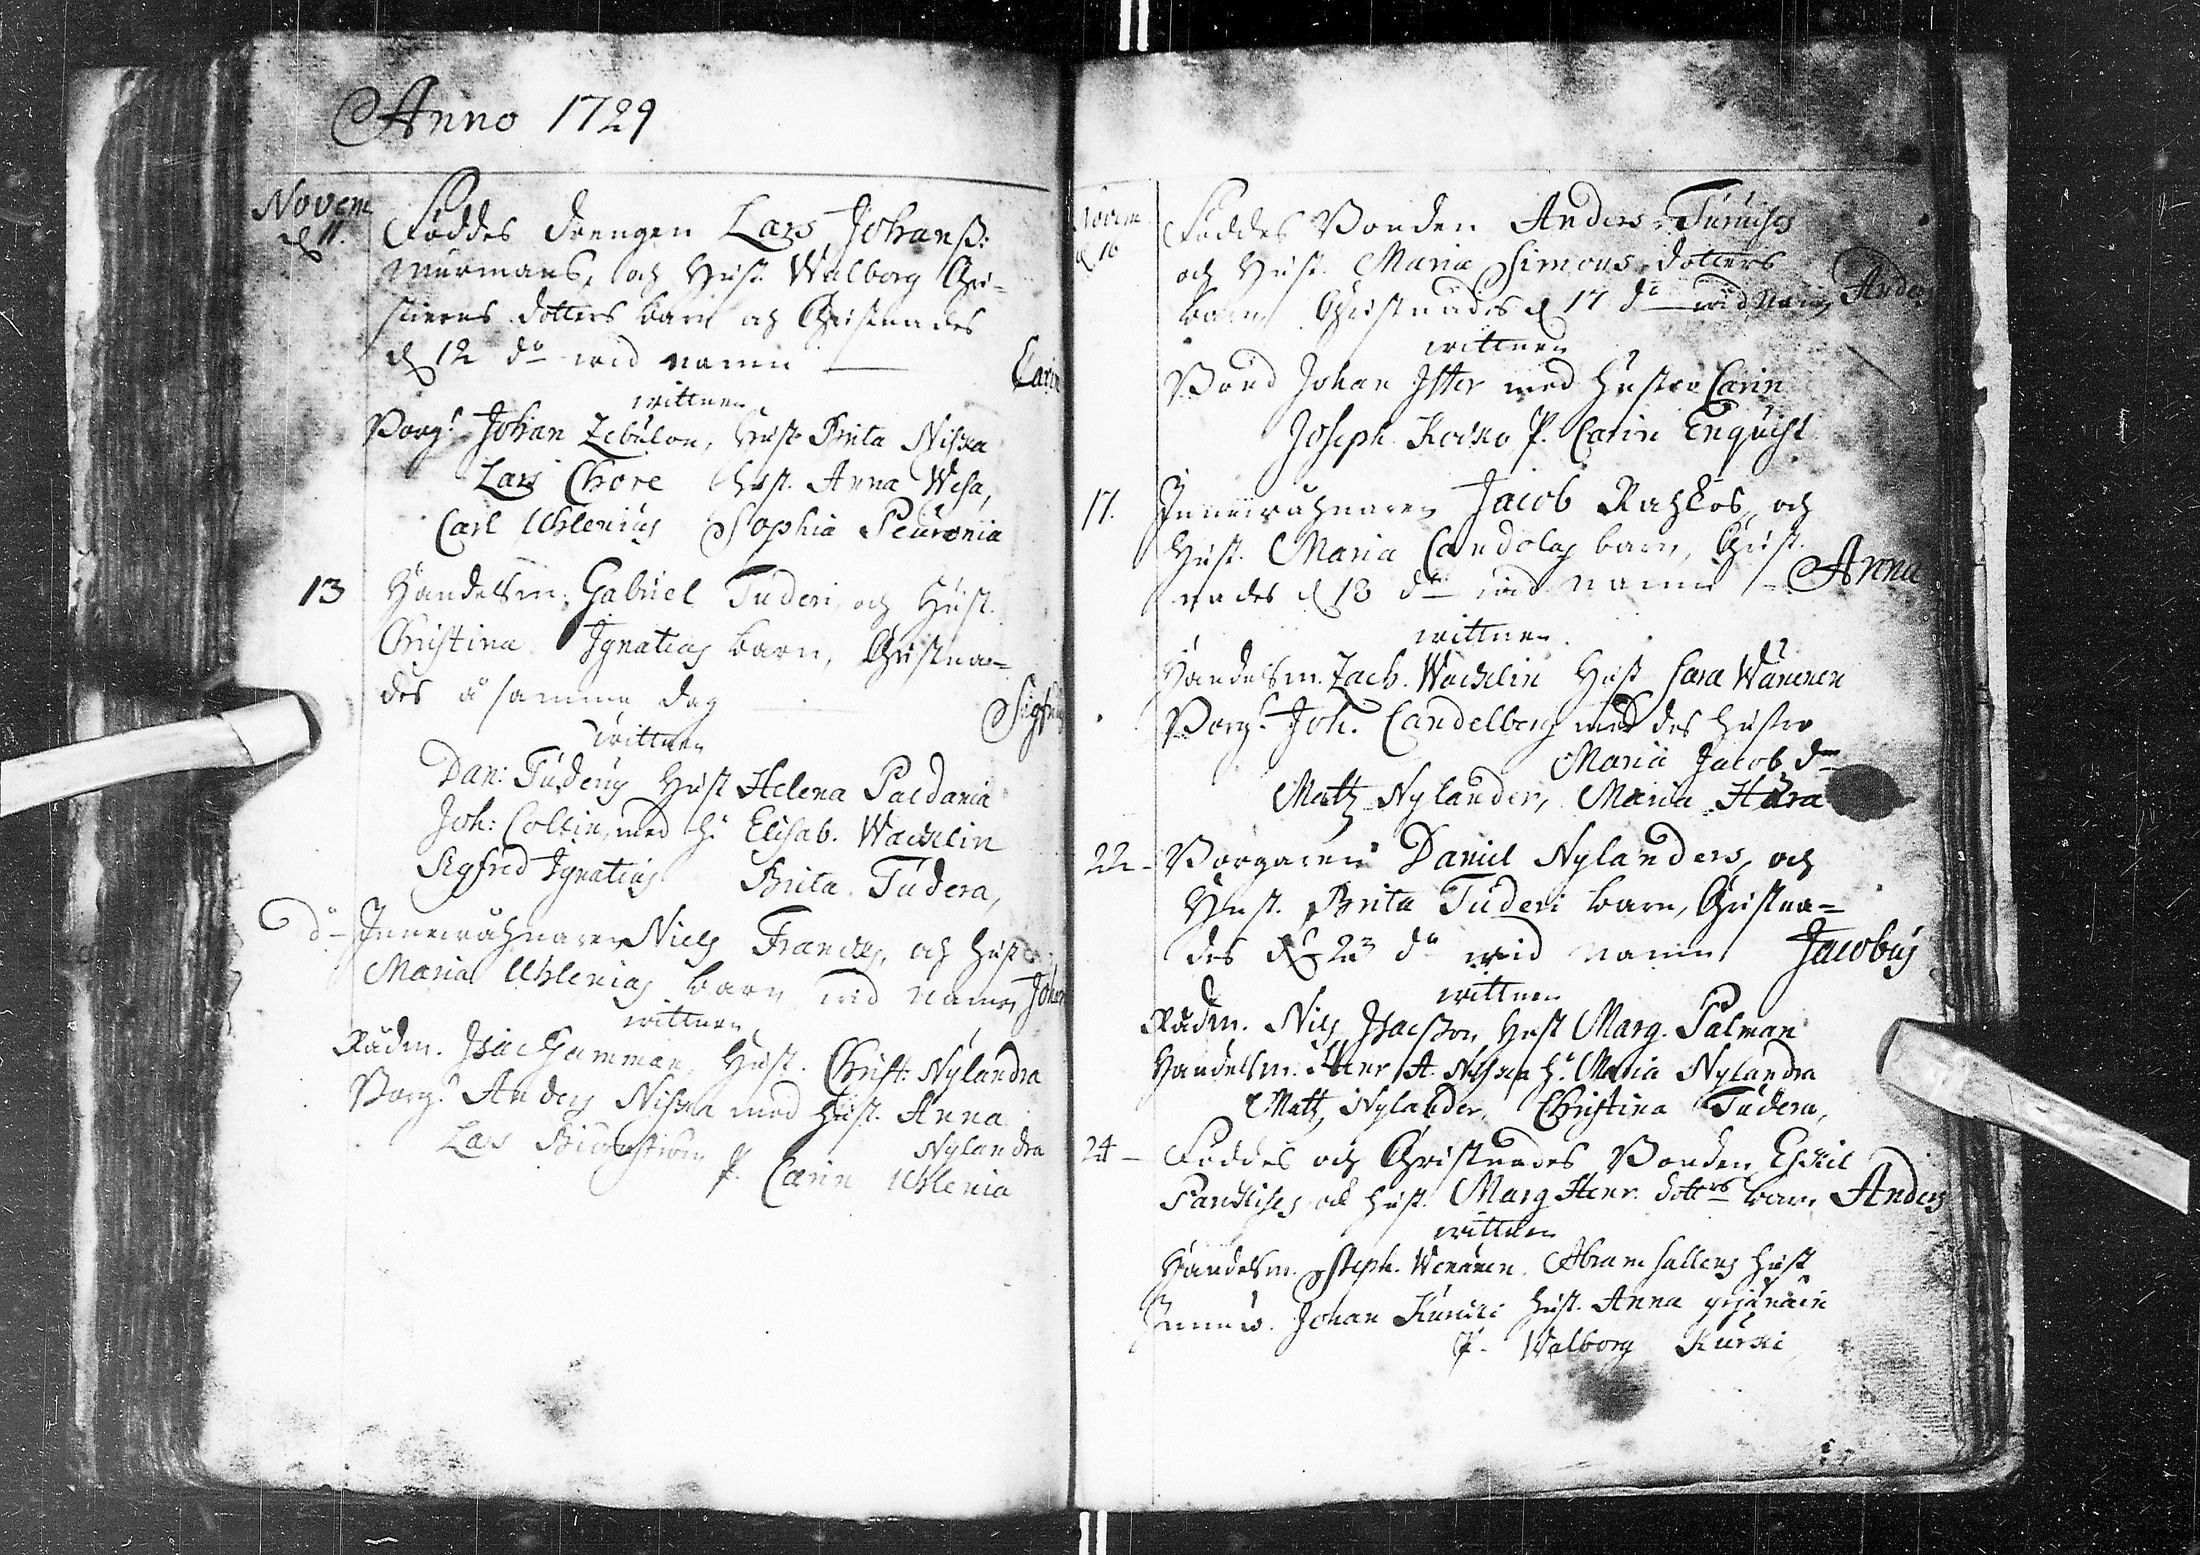 Anno 1729
Novem
d 11. Föddes drengen Lars Johanss:
Murmans, och Hust. Walborg Chri-
stiers dotters barn och Christnades
d 12 do wid namn — Carin
wittnen
Borg. Johan Zebulon, Hust Brita Niska
Lars Chore Hust. Anna Wesa,
Carl Uhlenius Sophia Peuronia
13 Handelsm. Gabriel Tuderi, och Hust.
Christina Ignatias barn, Christna-
des samma dag — Sigf
wittnen
Dan: Tuderus Hust Helena Paldania
Joh: Collin, med h. Elisab. Wacklin
Sigfred Ignatius Brita Tudera,
do Inneiråhnaren Niels Francks, och Hust
Maria Uhlenias barn wid namn Joh
wittnen
Rådm. Isac Gamman, Hust. Christ: Nylandra
Borg. Anders Niska med Hust. Anna
Nylandra
Lars P. Carin Uhlenia
Novem
d 16 Föddes Bonden Anders Turuises
och Hust. Maria Simons dotters
barn Christnades d 17 do wid namn Anders
wittnen
Bond Johan Itter med hustro Carin
Joseph Kocko P. Carin Enquist
17. Inneiråhnaren Jacob Rahkos, och
Hust. Maria Candolas barn, Christ-
nades d 18 do wid namn — Anna
wittnen
Handelsm. Zach. Wacklin Hust Sara Wänenen
Borg. Joh. Candelberg med des hustro
Maria Jacob dr
Matz Nylander, Maria Hära
22 - Borgaren Daniel Nylanders, och
Hust. Brita Tuderi barn, Christna-
des d 23 do wid namn Jacobus
wittnen
Rådm. Nils Isacsson Hust Marg. Salman
Handelsm. Henr A. Niska h. Maria Nylandra
Matz Nylander, Christina Tudera,
24 - Föddes och Christnades Bonden Eskil
och Hust. Marg Henr. dottrs barn Anders
wittnen
Handelsm. Steph. Wenänen. Abram Sallens Hust
Innew. Johan Kunicki Hust. Anna
P. Walborg Kurki